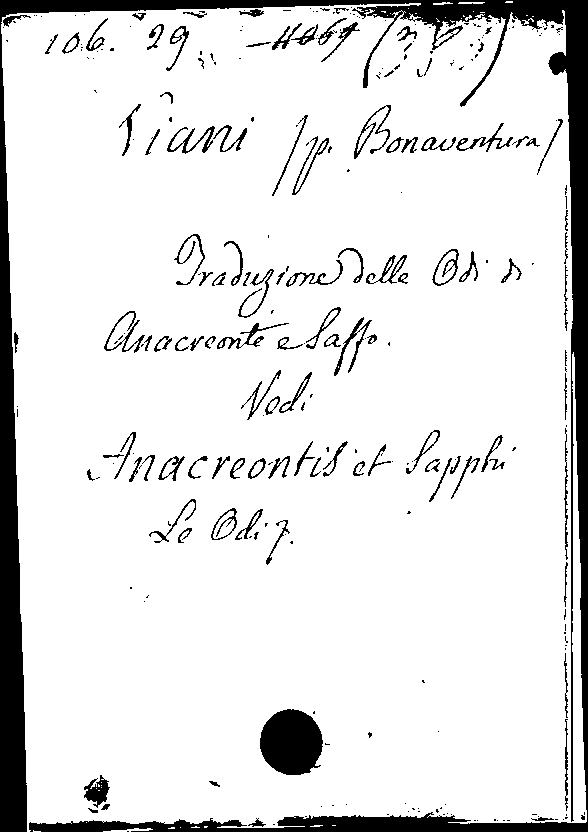 106. 29
Viani /p. Bonaventura/
Traduzione delle Odi di
Anacreonte e Saffo.
Vedi
Anacreontis et Sapphi
Le Odi